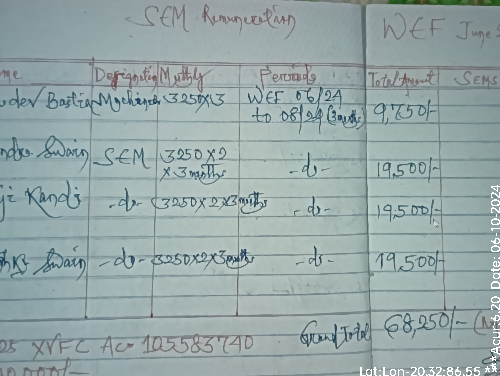 SEM Remuneration
WEF June
me Designation Muthly Periods Total Amount SEMS
Bastia 3250x3 WEF 06/24 9,750/-
to 08/24 (3 months)
Swain SEM 3250x2 -do- 19,500/-
x 3 months
Kandi -do- 3250x2x3 months -do- 19,500/-
Swain -do- 3250x2x3 months -do- 19,500/-
Grand Total 68,250/-
Ac- 105583740
Lat:Lon-20.32:86.55 ** Acur:6.20 Date: 06-10-2024